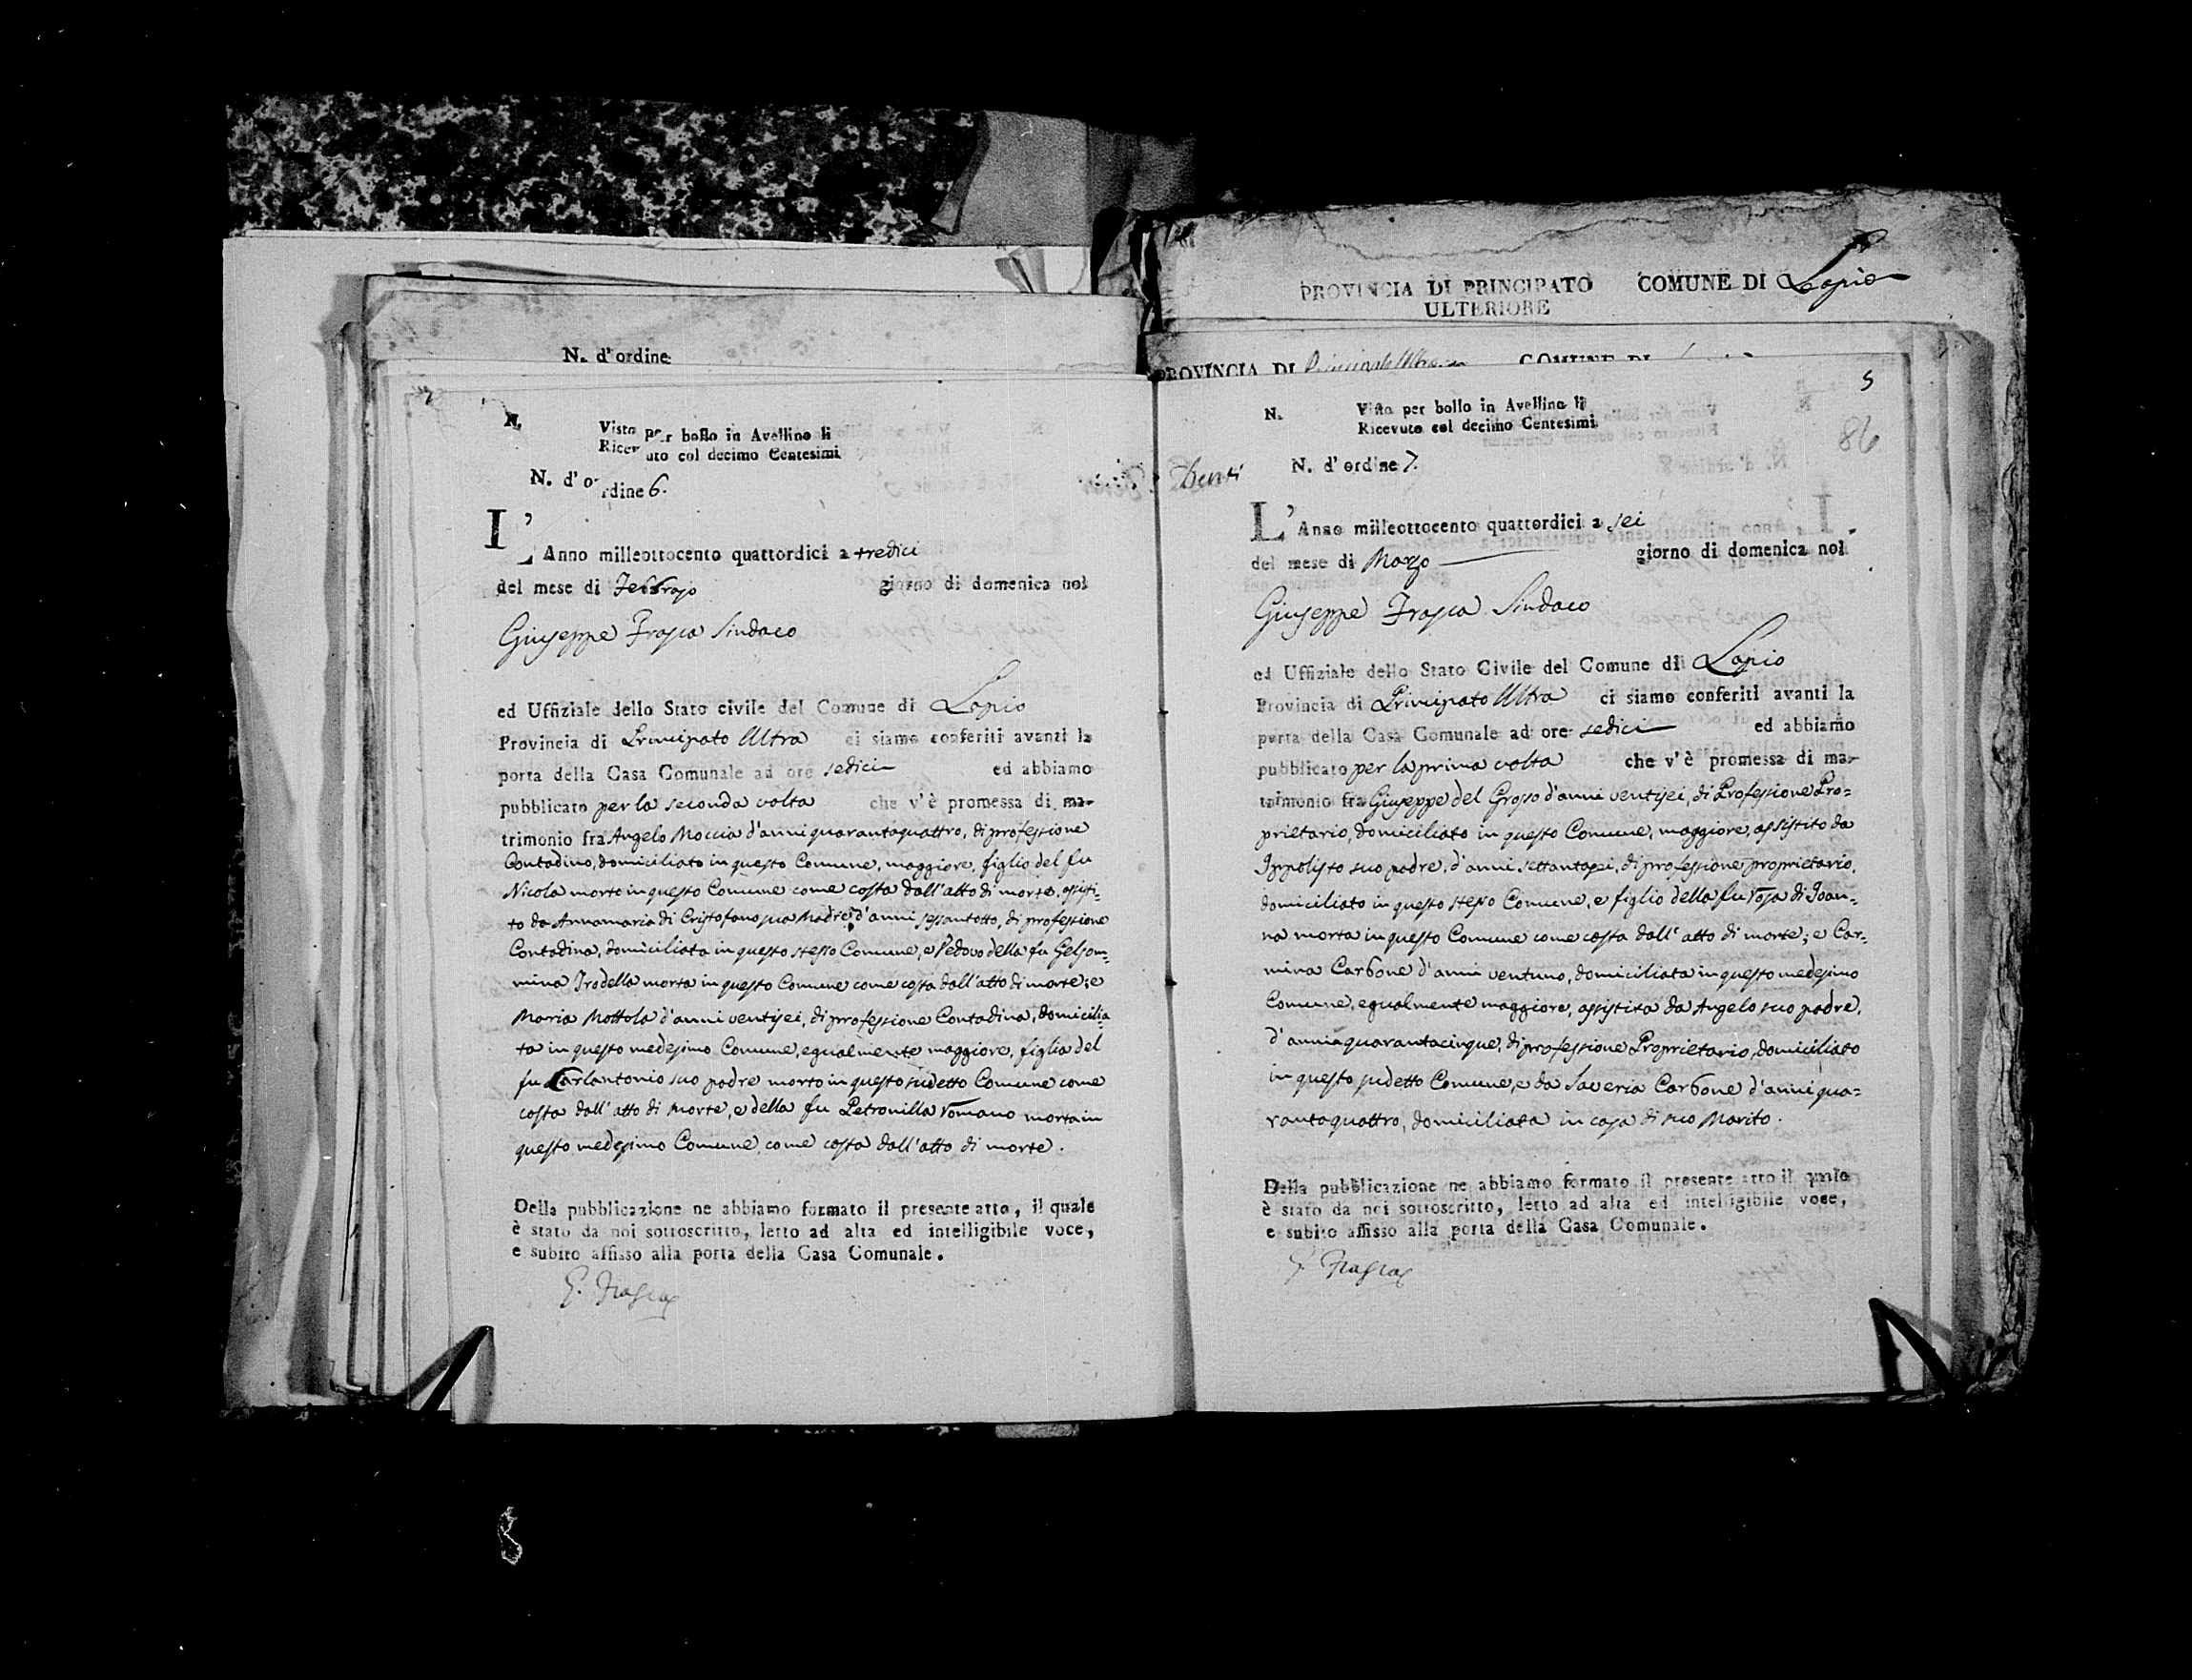 N. d' ordine
N.
Visto per bollo in Avellino li
Ricevuto col decimo Centesimi
N. d' ordine 6.
L' Anno milleottocento quattordici a tredici
del mese di Febbrajo giorno di domenica noi
Giuseppe Frasca Sindaco
ed Uffiziale dello Stato civile del Comune di Lapio
Provincia di Principato Ultra ci siamo conferiti avanti la
porta della Casa Comunale ad ore sedici ed abbiamo
pubblicato per la seconda volta che v'è promessa di ma-
trimonio fra Angelo Moccia d'anni quarantaquattro, di professione
Contadino, domiciliato in questo Comune, maggiore, figlio del fu
Nicola morto in questo Comune come costa dall'atto di morte, assisti=
to da Annamaria di Cristofano sua Madre d'anni sessantotto, di professione
Contadina, domiciliata in questo stesso Comune, e Vedovo della fu Gelsom=
mina Trodella morta in questo Comune come costa dall'atto di morte; e
Maria Mottola d'anni ventisei, di professione Contadina, domicilia=
ta in questo medesimo Comune, egualmente maggiore, figlia del
fu Carlantonio suo padre morto in questo sudetto Comune come
costa dall'atto di morte, e della fu Petronilla Romano morta in
questo medesimo Comune, come costa dall'atto di morte.
Della pubblicazione ne abbiamo formato il presente atto, il quale
è stato da noi sottoscritto, letto ad alta ed intelligibile voce,
e subito affisso alla porta della Casa Comunale.
G. Frasca
PROVINCIA DI PRINCIPATO ULTERIORE COMUNE DI Lapio
PROVINCIA DI COMUNE DI
5
86
N.
Visto per bollo in Avellino li
Ricevuto col decimo Centesimi
N. d' ordine 7.
L' Anno milleottocento quattordici a sei
del mese di Marzo giorno di domenica noi
Giuseppe Frasca Sindaco
ed Uffiziale dello Stato Civile del Comune di Lapio
Provincia di Principato Ultra ci siamo conferiti avanti la
porta della Casa Comunale ad ore sedici ed abbiamo
pubblicato per la prima volta che v'è promessa di ma-
trimonio fra Giuseppe del Grosso d'anni ventisei, di Professione Pro=
prietario, domiciliato in questo Comune, maggiore, assistito da
Ippolisto suo padre, d'anni settantasei, di professione proprietario,
domiciliato in questo stesso Comune, e figlio della fu Rosa di Joan=
na morta in questo Comune come costa dall'atto di morte; e Car=
mina Carbone d'anni ventuno, domiciliata in questo medesimo
Comune, egualmente maggiore, assistita da Angelo suo padre,
d'anni quarantacinque, di professione Proprietario, domiciliato
in questo sudetto Comune, e da Saveria Carbone d'anni qua=
rantaquattro, domiciliata in casa di suo Marito.
Della pubblicazione ne abbiamo formato il presente atto il quale
è stato da noi sottoscritto, letto ad alta ed intelligibile voce,
e subito affisso alla porta della Casa Comunale.
G. Frasca